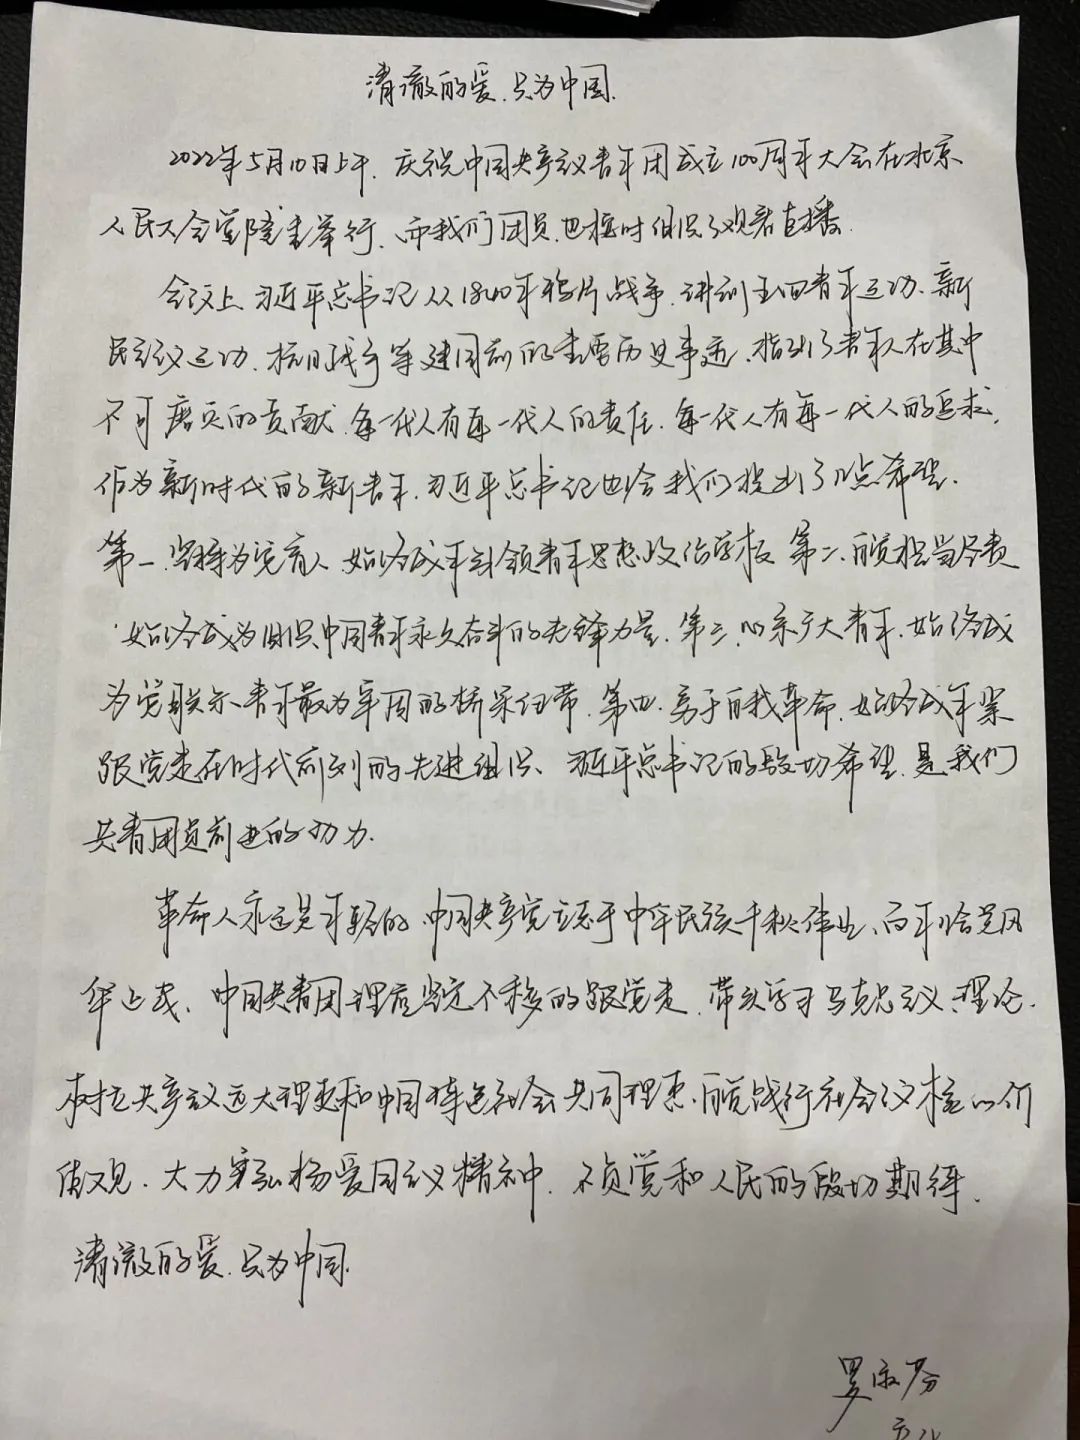 清澈的爱,只为中国.
2022年5月10日上午,庆祝中国共产主义青年团成立100周年大会在北京
人民大会堂隆重举行,而我们团员也按时组织了观看直播.
会议上,习近平总书记从1840年鸦片战争,讲到五四青年运动、新
民主主义运动、抗日战争等建国前的重要历史事迹,指出了青年人在其中
不可磨灭的贡献,每一代人有每一代人的责任,每一代人有每一代人的追求,
作为新时代的新青年,习近平总书记也给我们提出了几点希望.
第一,坚持为党育人,始终成为引领青年思想政治学校 第二,自觉担当尽责
始终成为组织中国青年永久奋斗的先锋力量,第三,心系广大青年,始终成
为党联系青年最为牢固的桥梁纽带,第四,勇于自我革命,始终成为紧
跟党走在时代前列的先进组织、习近平总书记的殷切希望,是我们
共青团员前进的动力.
革命人永远是年轻的,中国共产党立志于中华民族千秋伟业、百年恰是风
华正茂、中国共青团理应坚定不移的跟党走,带头学习马克思主义理论.
树立共产主义远大理想和中国特色社会共同理想,自觉践行社会主义核心价
值观,大力弘扬爱国主义精神,不负党和人民的殷切期待,
清澈的爱,只为中国.